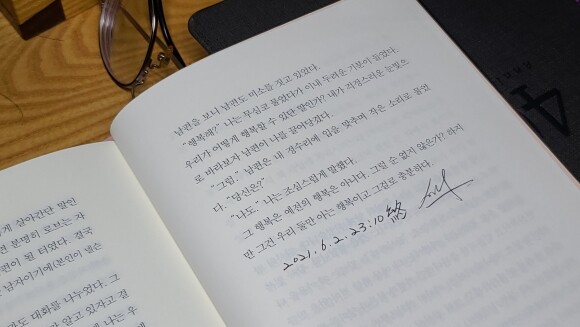 게 살아간단 말만
면 분명히 로브는 자
편이 될 터였다. 결국
남자이기에(본인이 넬슨
라도 대화를 나누었다. 그
알고 있자고 결
에 나는 우
남편을 보니 남편도 미소를 짓고 있었다.
“행복해?” 나는 무심코 물었다가 이내 두려운 기분이 들었다.
우리가 어떻게 행복할 수 있단 말인가? 내가 걱정스러운 눈빛으
로 바라보자 남편이 나를 끌어당겼다.
“그럼.” 남편은 내 정수리에 입을 맞추며 작은 소리로 물었
다. “당신은?”
“나도.” 나는 조심스럽게 말했다.
그 행복은 예전의 행복은 아니다. 그럴 순 없지 않은가? 하지
만 그건 우리 둘만 아는 행복이고 그걸로 충분하다.
2021. 6. 2. 23:10 終
4